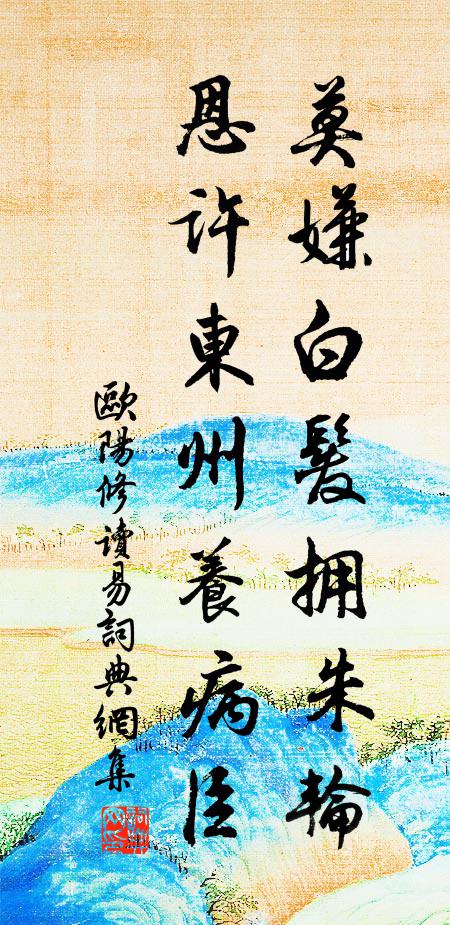 莫嫌白髮拥朱輪
恩许東州養病臣
歐陽修讀易詞典網集